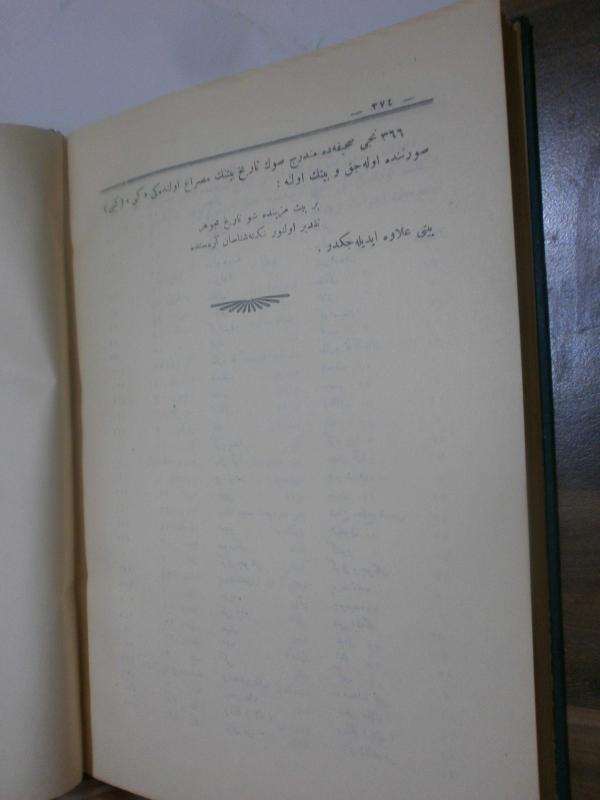 — ٣٧٤ —
٣٦٦ نجی صحیفه‌ده مندرج صوك تاریخ بیتنك مصراع اولنده‌كی « كبی » ( كبی )
صورتنده اوله‌جق و بیتك اولنه :
بر بیت مزینده شو تاریخ مجوهر
تقدیر اولنور نكته‌شناسان گره‌سنده
بیتی علاوه ایدیله‌جكدر .